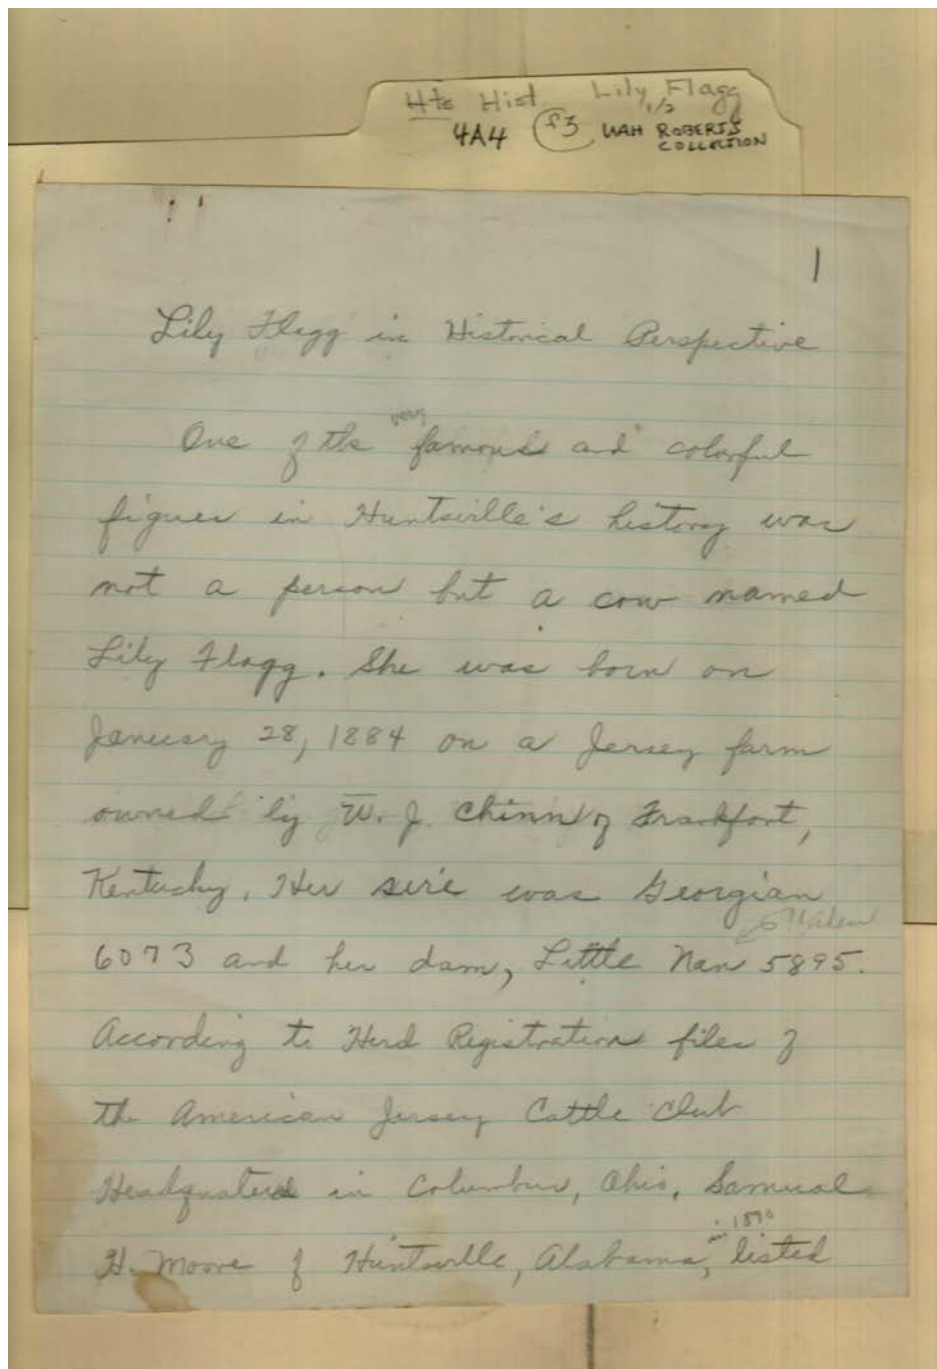 Hts Hist Lily Flagg
1/2
4A4 f3 UAH ROBERTS
COLLECTION
1
Lily Flagg in Historical Perspective
very
One of the famous and colorful
figures in Huntsville's history was
not a person but a cow named
Lily Flagg. She was born on
January 28, 1884 on a Jersey farm
owned by W. J. Chinn of Frankfort,
Kentucky. Her sire was Georgian
6073 and her dam, Little Nan 5895.
According to Herd Registration files of
the American Jersey Cattle Club
Headquaters in Columbus, Ohio, Samual
in 1890
H. Moore of Huntsville, Alabama, listed